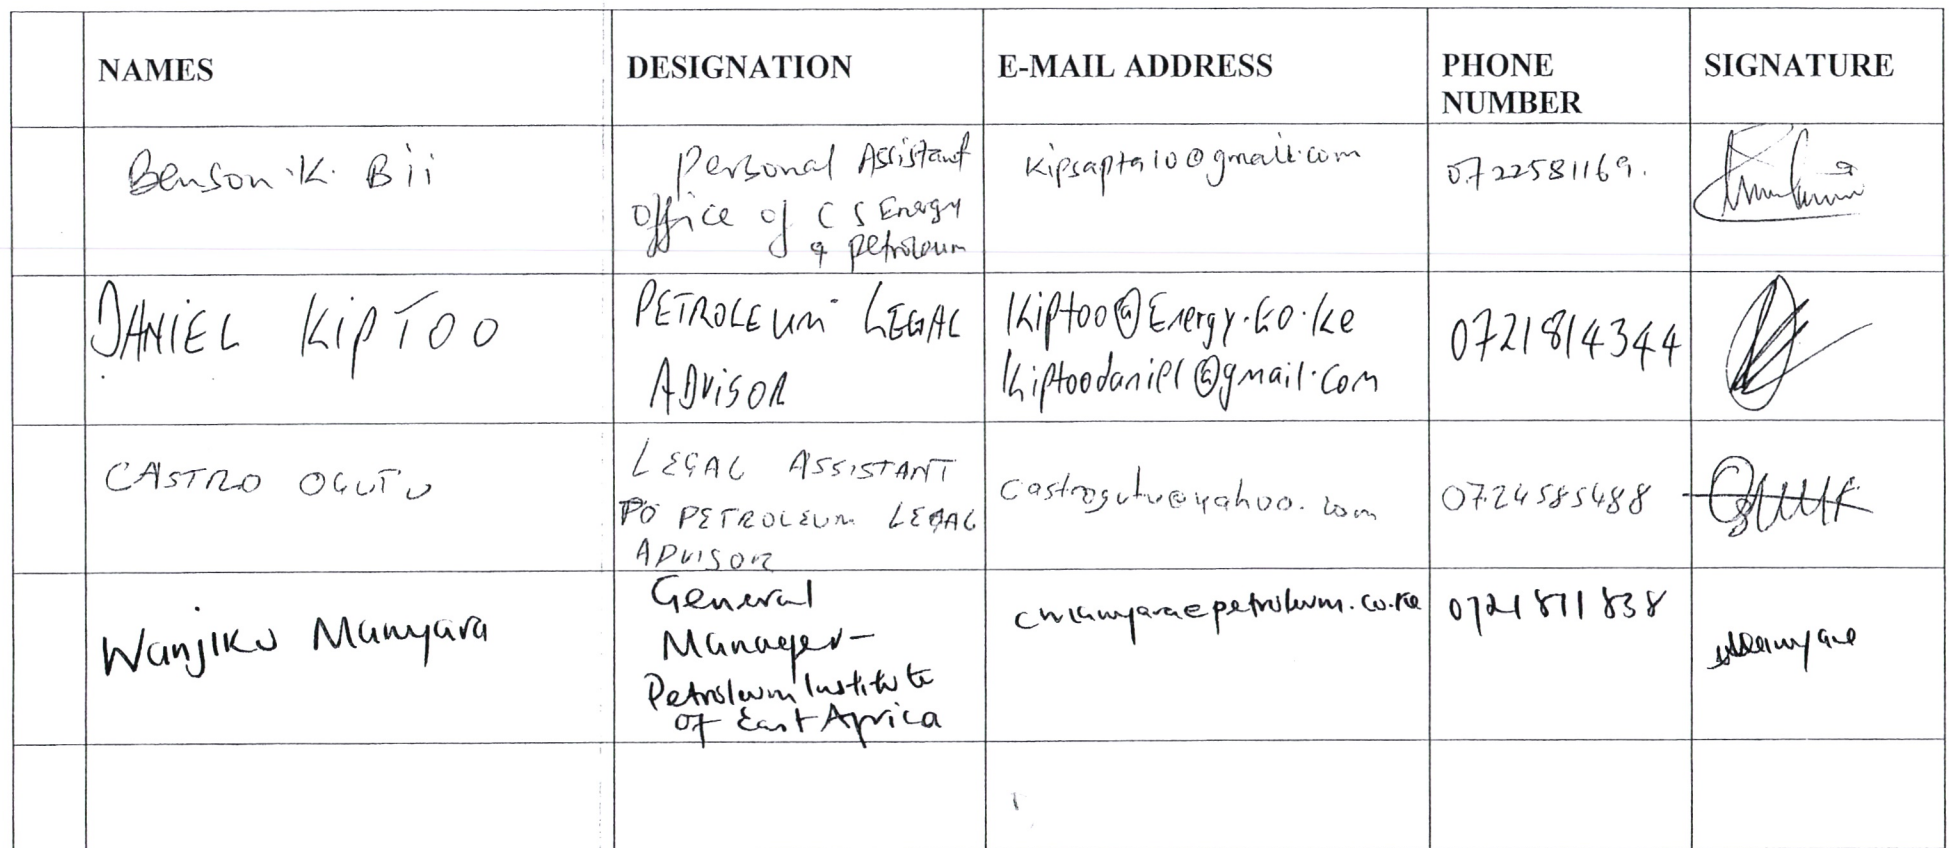 NAMES
DESIGNATION
E-MAIL ADDRESS
PHONE
NUMBER
SIGNATURE
Benson K. Bii
Personal Assistant
Office of CS Energy
& Petroleum
kipsapta10@gmail.com
0722581169.
DANIEL KIPTOO
PETROLEUM LEGAL
ADVISOR
Kiptoo@Energy.Go.Ke
Kiptoodaniel@gmail.com
0721814344
CASTRO OGUTU
LEGAL ASSISTANT
TO PETROLEUM LEGAL
ADVISOR
castrogutu@yahoo.com
0724585488
Wanjiku Manyara
General
Manager-
Petroleum Institute
of East Africa
0721 811 838